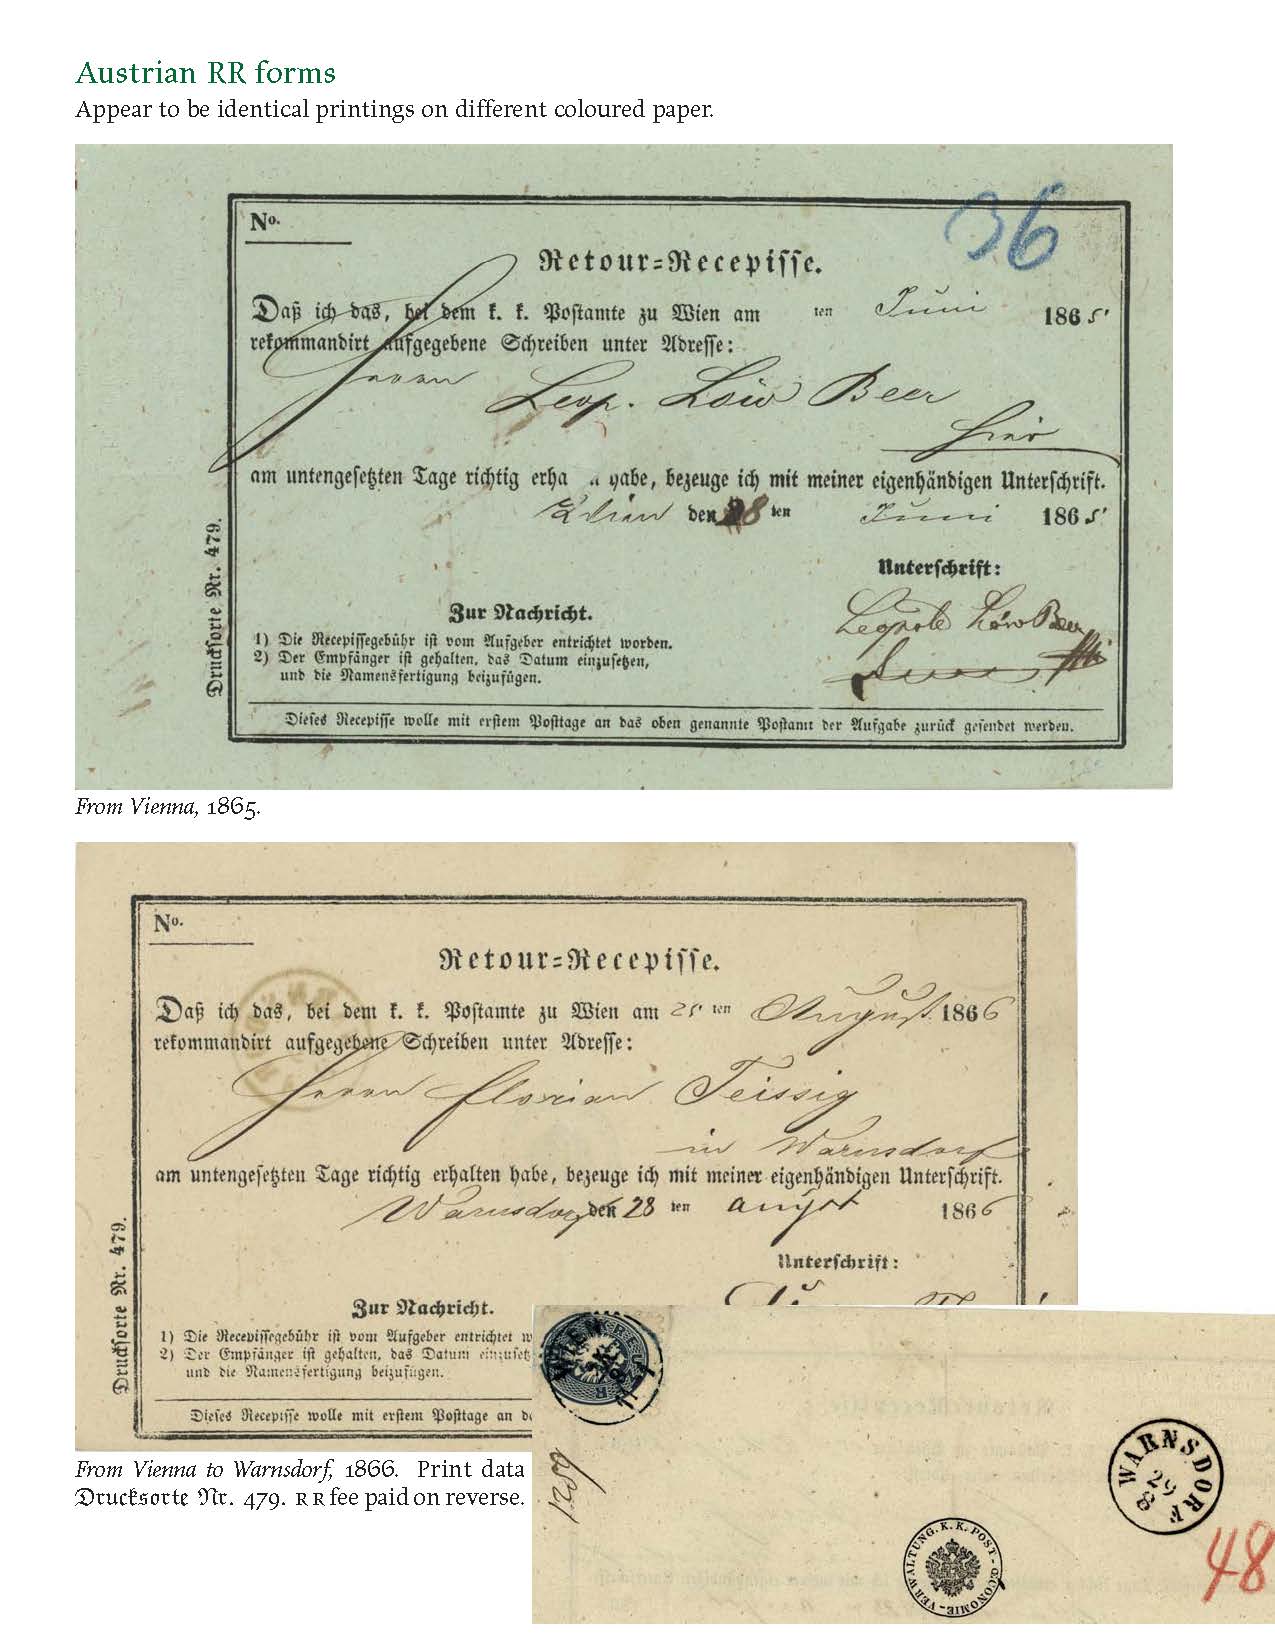 Austrian RR forms
Appear to be identical printings on different coloured paper.
No.
36
Retour=Recepisse.
Daß ich das, bei dem k. k. Postamte zu Wien am ten Juni 1865
rekommandirt aufgegebene Schreiben unter Adresse:
Herrn Leop. Löw Beer
hier
am untengesetzten Tage richtig erha habe, bezeuge ich mit meiner eigenhändigen Unterschrift.
Wien den 28 ten Juni 1865
Unterschrift:
Leopold Löw Beer
Zur Nachricht.
1) Die Recepissegebühr ist vom Aufgeber entrichtet worden.
2) Der Empfänger ist gehalten, das Datum einzusetzen,
und die Namensfertigung beizufügen.
Dieses Recepisse wolle mit erstem Posttage an das oben genannte Postamt der Aufgabe zurück gesendet werden.
Drucksorte Nr. 479.
From Vienna, 1865.
No.
Retour=Recepisse.
Daß ich das, bei dem k. k. Postamte zu Wien am 25 ten August 1866
rekommandirt aufgegebene Schreiben unter Adresse:
Herrn Florian Teissig
in Warnsdorf
am untengesetzten Tage richtig erhalten habe, bezeuge ich mit meiner eigenhändigen Unterschrift.
Warnsdorf den 28 ten augst 1866
Unterschrift:
Zur Nachricht.
1) Die Recepissegebühr ist vom Aufgeber entrichtet w
2) Der Empfänger ist gehalten, das Datum einzusetz
und die Namensfertigung beizufügen.
Dieses Recepisse wolle mit erstem Posttage an d
Drucksorte Nr. 479.
WARNSDORF
29
8
VERWALTUNG. K. K. POST-OECONOMIE-
48
From Vienna to Warnsdorf, 1866. Print data
Drucksorte Nr. 479. RR fee paid on reverse.